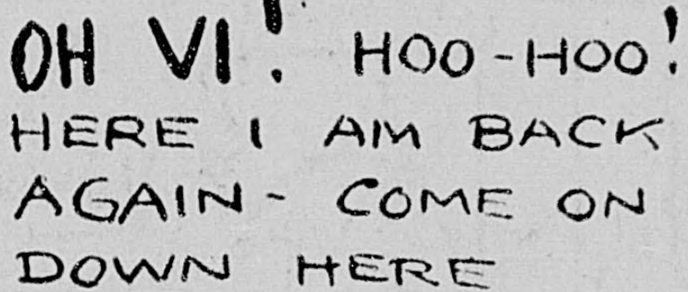 OH VI! HOO-HOO!
HERE I AM BACK
AGAIN- COME ON
DOWN HERE